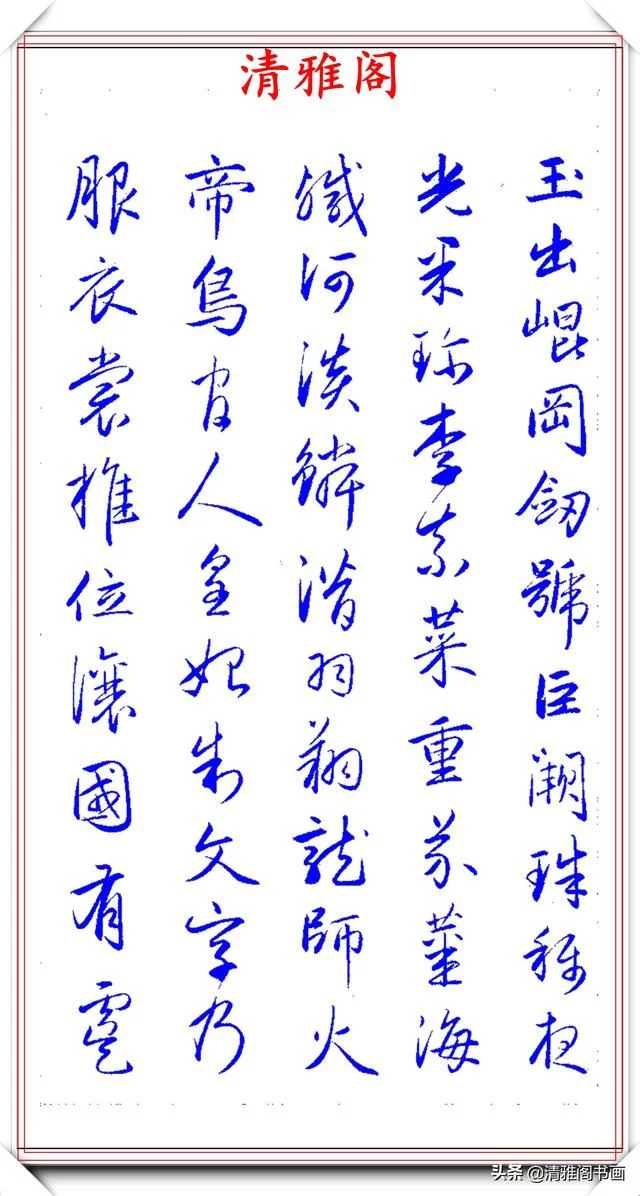 清雅阁
玉出崐岡劒號巨闕珠称夜
光果珍李柰菜重芥薑海
鹹河淡鱗潛羽翔龍師火
帝鳥官人皇始制文字乃
服衣裳推位讓國有虞
头条 @清雅阁书画